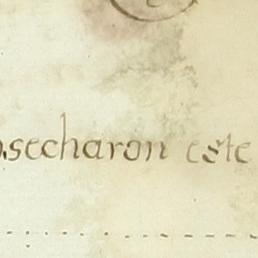 osecharon este